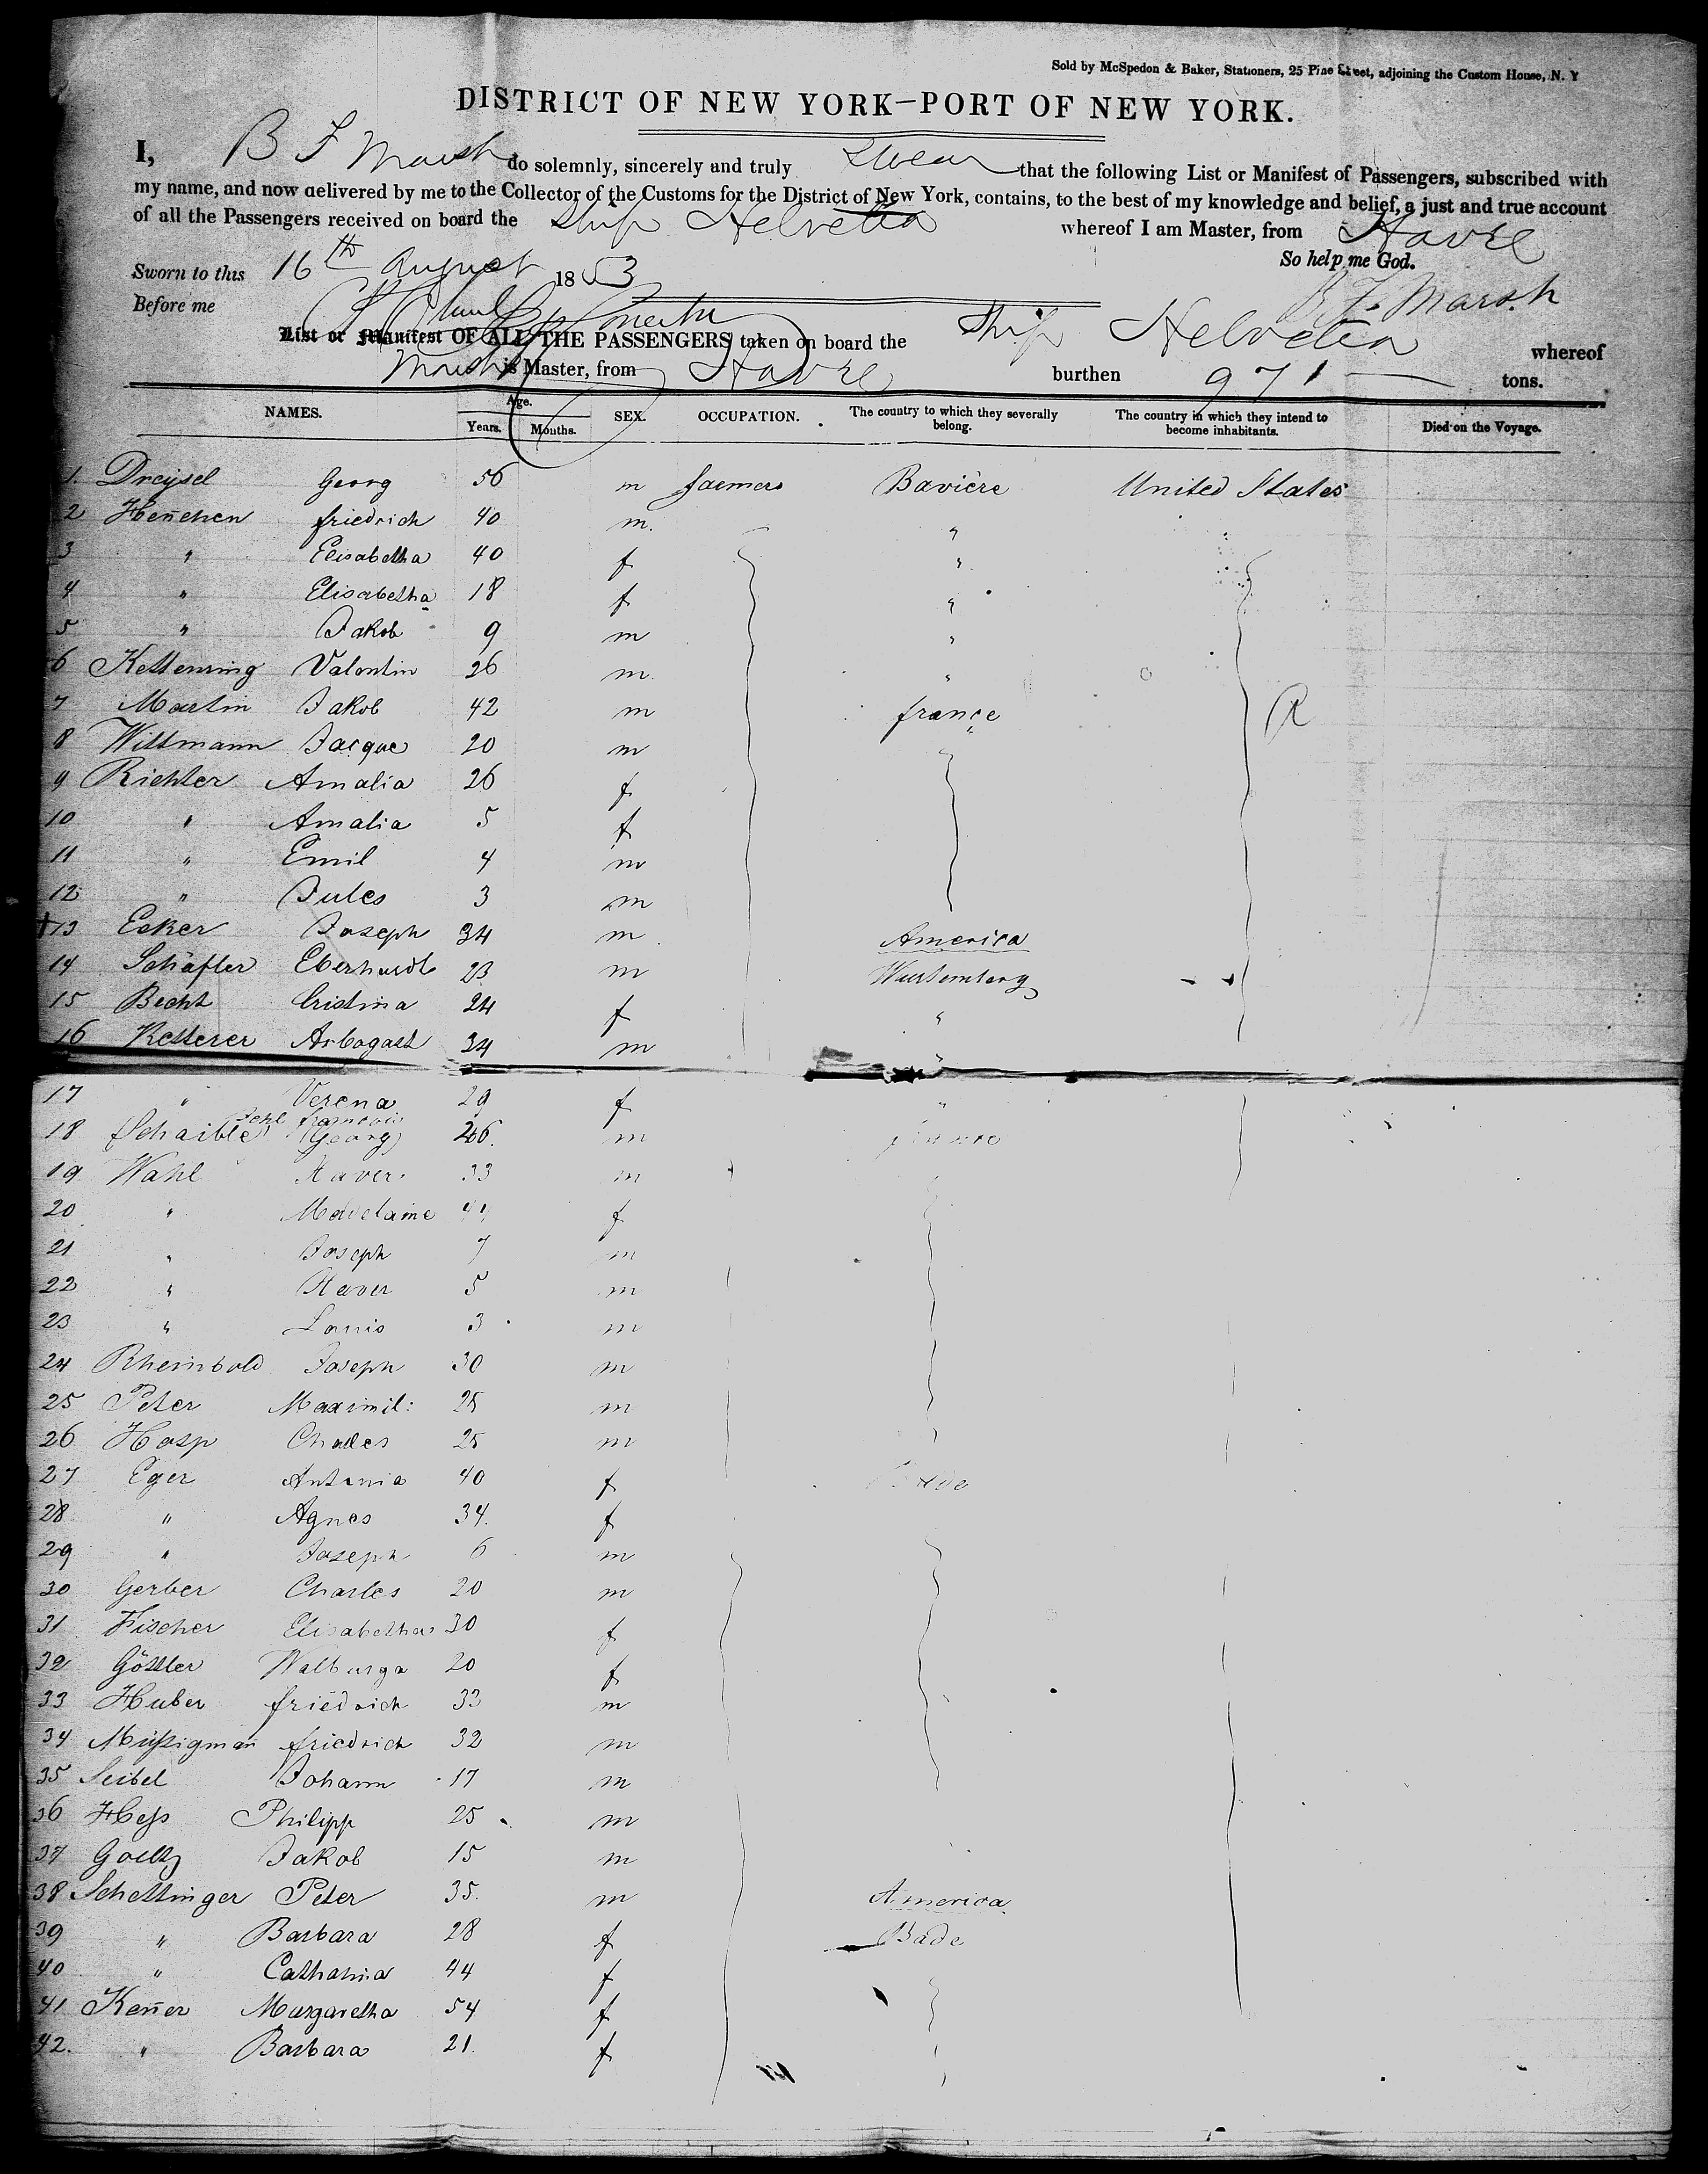 Sold by McSpedon & Baker, Stationers, 25 Pine Street, adjoining the Custom House, N. Y
DISTRICT OF NEW YORK—PORT OF NEW YORK.
I, B F Marsh do solemnly, sincerely and truly swear that the following List or Manifest of Passengers, subscribed with
my name, and now delivered by me to the Collector of the Customs for the District of New York, contains, to the best of my knowledge and belief, a just and true account
of all the Passengers received on board the Ship Helvetia whereof I am Master, from Havre
So help me God.
Sworn to this 16th August 1853
B F. Marsh
Before me
List or Manifest OF ALL THE PASSENGERS taken on board the Ship Helvetia whereof
Marsh is Master, from Havre burthen 971 tons.
NAMES. Age. Years. Months. SEX. OCCUPATION. The country to which they severally belong. The country in which they intend to become inhabitants. Died on the Voyage.
1. Dreysel Georg 56 m farmers Bavière United States
2 Hen̄chen friedrich 40 m. "
3 " Elisabetha 40 f "
4 " Elisabetha 18 f "
5 " Jakob 9 m "
6 Kettenring Valentin 26 m. "
7 Martin Jakob 42 m france R
8 Wittmann Jacque 20 m "
9 Richter Amalia 26 f
10 " Amalia 5 f
11 " Emil 4 m
12 " Jules 3 m
+13 Ecker Joseph 34 m America
14 Schäfler Eberhardt 23 m Wurtemberg
15 Becht Cristina 24 f "
16 Ketterer Arbogast 34 m "
17 " Verena 29 f "
18 Schaible Georg 26. m france
19 Wahl Xaver 33 m
20 " Madelaine 44 f
21 " Joseph 7 m
22 " Xaver 5 m
23 " Louis 3 m
24 Rheinbold Joseph 30 m
25 Peter Maximil: 25 m
26 Hosp Charles 25 m
27 Eger Antonia 40 f Bade
28 " Agnes 34. f
29 " Joseph 6 m
30 Gerber Charles 20 m
31 Fischer Elisabetha 30 f
32 Göttler Walburga 20 f
33 Huber friedrich 33 m
34 Müßigman̄ friedrich 32 m
35 Seibel Johann 17 m
36 Heß Philipp 25 m
37 Goeltz Jakob 15 m
38 Schettinger Peter 35. m America
39 " Barbara 28 f Bade
40 " Catharina 44 f
41 Ken̄er Margaretha 54 f
42. " Barbara 21. f